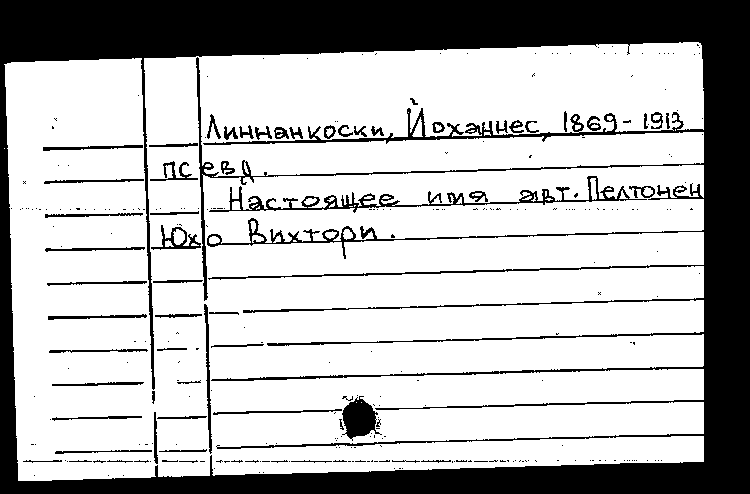 Линнанкоски, Йоханнес, 1869-1913
псевд.
Настоящее имя авт. Пелтонен
Юхо Вихтори.